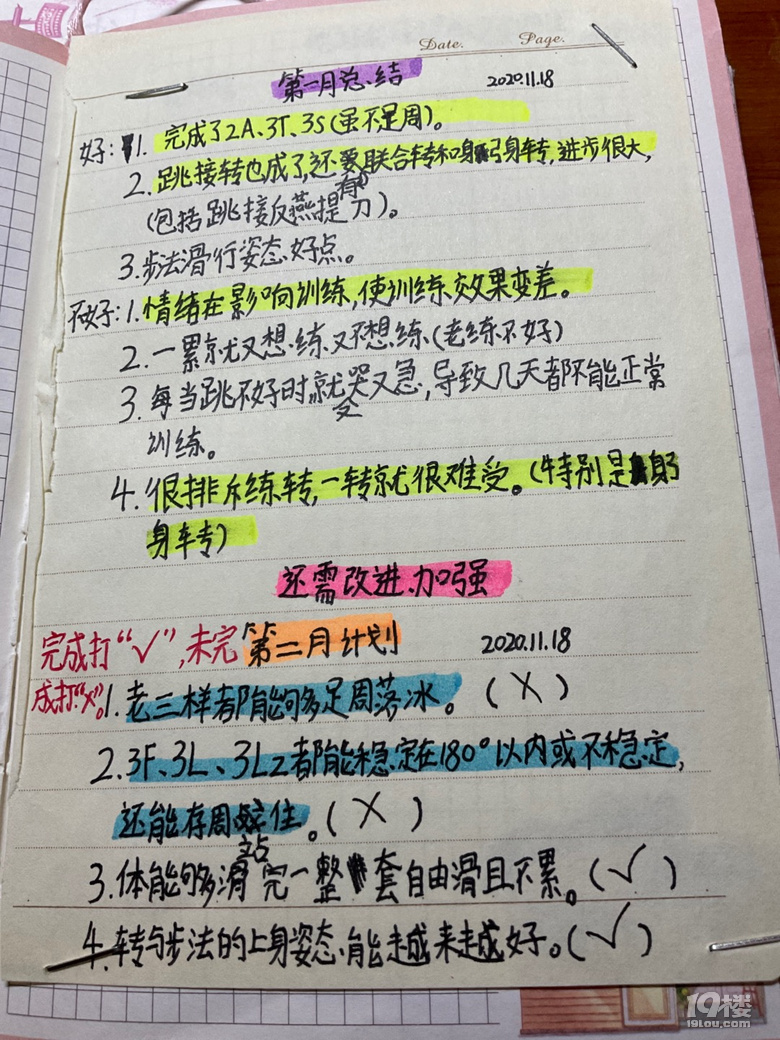 Date. Page.
第一月总结 2020.11.18
好：1. 完成了2A、3T、3S(虽不足周)。
2. 跳接转也成了,还有联合转和躬身转,进步很大,
(包括跳接反燕提刀)。
3. 步法滑行姿态好点。
不好：1. 情绪在影响训练,使训练效果变差。
2. 一累就又想练又不想练(老练不好)
3. 每当跳不好时,就哭又急,导致几天都不能正常
训练。
4. 很排斥练转,一转就很难受。(特别是躬
身转)
还需改进、加强
完成打“√”,未完 第二月计划 2020.11.18
成打“×”。1. 老三样都能够足周落冰。(×)
2. 3F、3L、3Lz都能稳定在180°以内或不稳定,
还能存周站住。(×)
3. 体能够滑完一整套自由滑且不累。(√)
4. 转与步法的上身姿态能越来越好。(√)
19楼
19lou.com